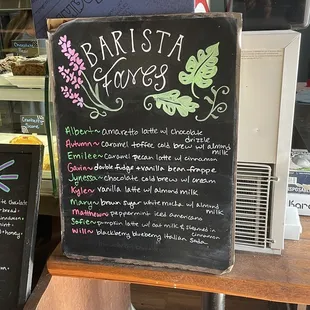 BARISTA
Faves
Albert~ amaretto latte w/ chocolate
drizzle
Autumn~ caramel toffee cold brew w/ almond
milk
Emilee~ caramel pecan latte w/ cinnamon
Gavin~ double fudge + vanilla bean frappe
Jynessa~ chocolate cold brew w/ cream
Kyle~ vanilla latte w/ almond milk
Mary~ brown sugar white mocha w/ almond
milk
Matthew~ peppermint iced americano
Sofie~ pumpkin latte w/ oat milk & steamed in
cinnamon
Will~ blackberry blueberry Italian Soda